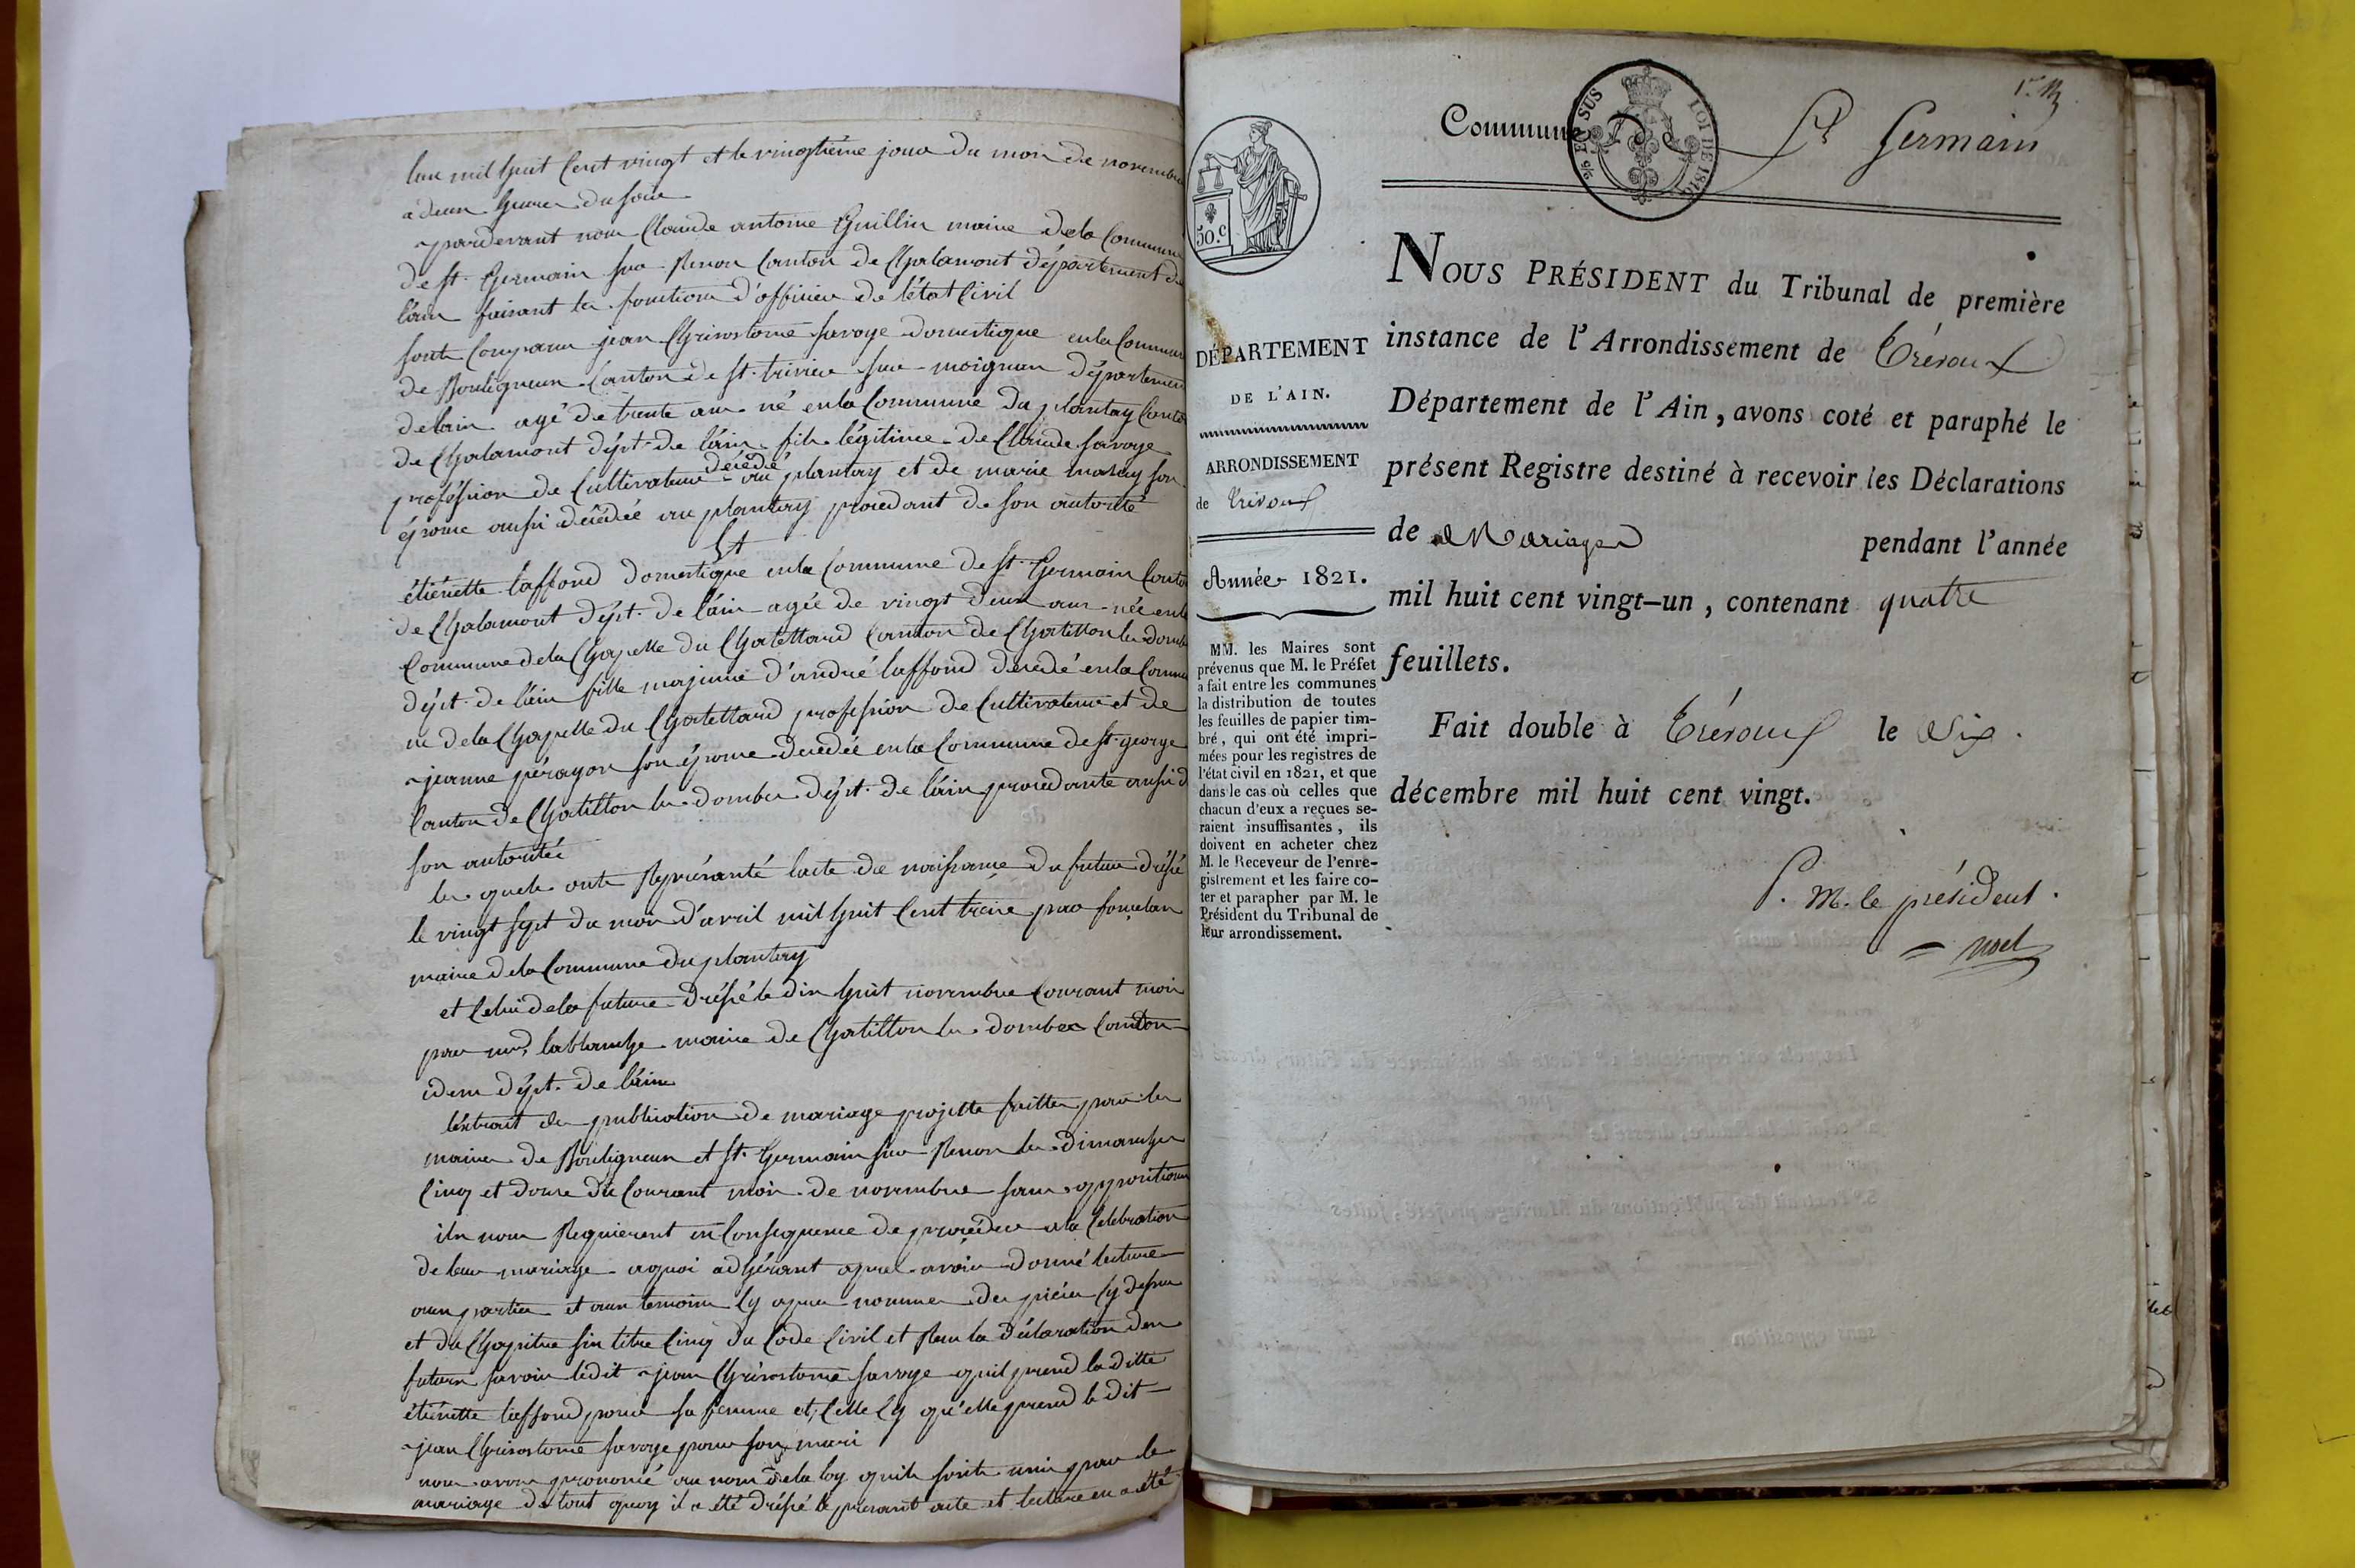 lan mil huit cent vingt et le vingtième jour du mois de novembre
a deux heures du soir
pardevant nous Claude antoine Guillin maire dela Commune
de st. Germain sur Renon Canton de Chalamont département de
l'ain faisant les fonctions d'officier de l'état Civil
sont Comparu jean Chrisostome Savoye domestique en la Commune
de Bouligneux Canton de st. trivier sur moignan département
de lain agé de trente ans né en la Commune du plantay Canton
de Chalamont dépt. de l'ain fils légitime de Claude Savoye
profession de Cultivateur décédé au plantay et de marie son
épouse aussi décédée au plantay procedant de son autorité
Et
étiénette laffond domestique en la Commune de st. Germain Canton
de Chalamont dépt. de l'ain agée de vingt deux ans née en la
Commune de la Chapelle du Chatellard Canton de Chatillon les Dombes
dépt. de l'ain fille majeure d'andré laffond décédé en la Commu
ne de la Chapelle du Chatellard profession de Cultivateur et de
jeanne pérayon son épouse décédée en la Commune de st. george
Canton de Chatillon les dombes dépt. de l'ain procedante aussi d
son autoritée
les quels ont Représanté lacte de naissance du futur dréssé
le vingt sept du mois d'avril mil huit Cent treize par
maire de la Commune du plantay
et Celui de la future dréssé le dix huit novembre Courant mois
par mr. lablanche maire de Chatillon les dombes Canton
idem dépt. de l'ain
l'éxtrait des publications de mariage projetté faittes par les
maires de Bouligneux et st. Germain sur Renon les dimanches
Cinq et douze du Courant mois de novembre sans oppositions
ils nous Requierent en Consequence de procéder a la Celebration
de leur mariage aquoi adhérant aprés avoir donné lecture
aux parties et aux temoins Cy aprés nommes des piéces Cy dessus
et du Chapitre six titre Cinq du Code Civil et Reçu la déclaration des
futurs savoir ledit jean Chrisostome Savoye quil prend la ditte
étiénette laffond pour sa femme et, Celle Cy qu'elle prend le dit
jean Chrisostome Savoye pour son mari
nous avons prononcé au nom de la loy quils sont unis par le
mariage de tout quoy il a été dréssé le présant acte et lecture en a été
1er
Commune de St Germain
% EN SUS
LOI DE 1816
50.c
DÉPARTEMENT
DE L'AIN.
ARRONDISSEMENT
de Trévoux
Année 1821.
MM. les Maires sont
prévenus que M. le Préfet
a fait entre les communes
la distribution de toutes
les feuilles de papier tim-
bré, qui ont été impri-
mées pour les registres de
l'état civil en 1821, et que
dans le cas où celles que
chacun d'eux a reçues se-
raient insuffisantes, ils
doivent en acheter chez
M. le Receveur de l'enre-
gistrement et les faire co-
ter et parapher par M. le
Président du Tribunal de
leur arrondissement.
NOUS PRÉSIDENT du Tribunal de première
instance de l'Arrondissement de Trévoux
Département de l'Ain, avons coté et paraphé le
présent Registre destiné à recevoir les Déclarations
de Mariages pendant l'année
mil huit cent vingt-un, contenant quatre
feuillets.
Fait double à Trévoux le Six
décembre mil huit cent vingt.
P. M. le président.